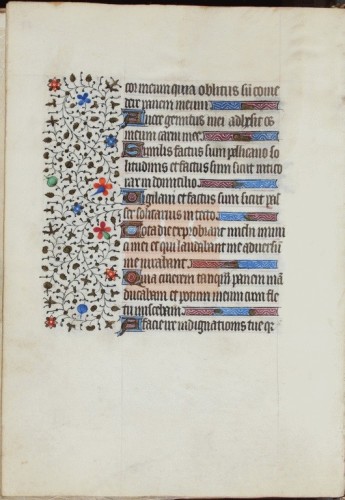 cor meum quia oblitus sū come
dere panem meum
A voce gemitus mei adhesit os
meum carni mee
Similis factus sum pellicano so
litudinis et factus sum sicut nictico
rax in domicilio
Vigilaui et factus sum sicut pas
ser solitarius in tecto
Tota die exprobrabant michi inimi
ci mei et qui laudabant me aduersū
me iurabant
Quia cinerem tanqm panem mā
ducabam et potum meum cum fle
tu miscebam
A facie ire indignationis tue qr